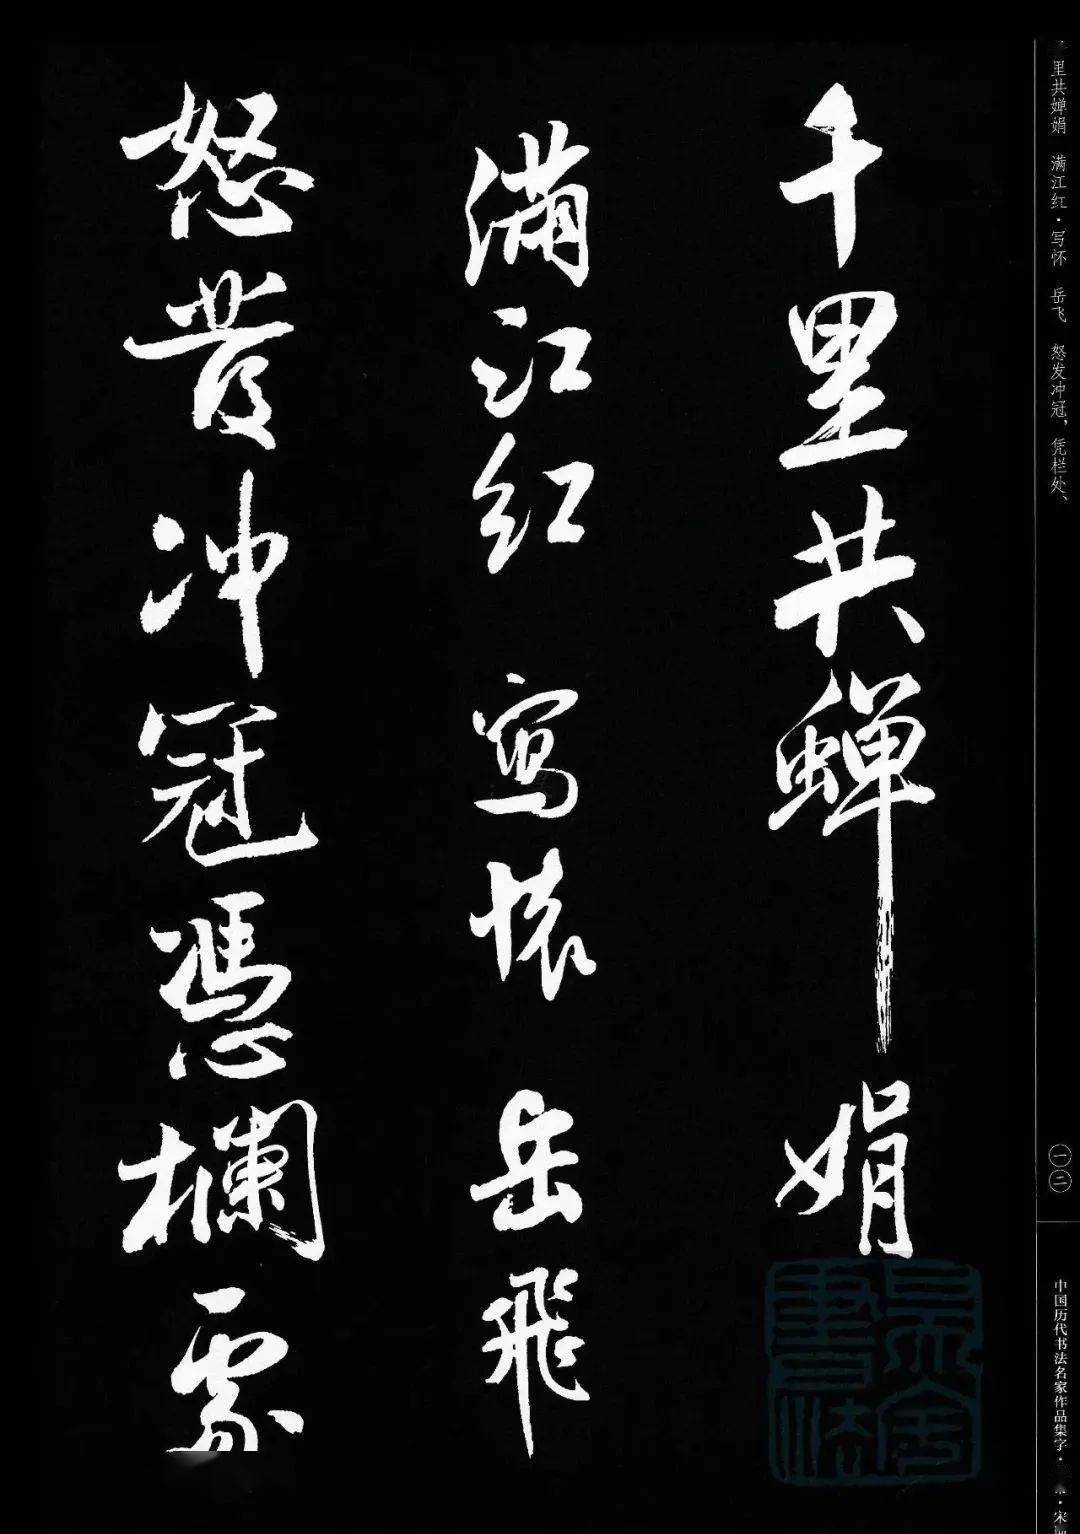 千里共蟬娟
滿江红 寫懷 岳飛
怒發冲冠憑欄處
里共婵娟 满江红·写怀 岳飞 怒发冲冠，凭栏处、
一二
中国历代书法名家作品集字·